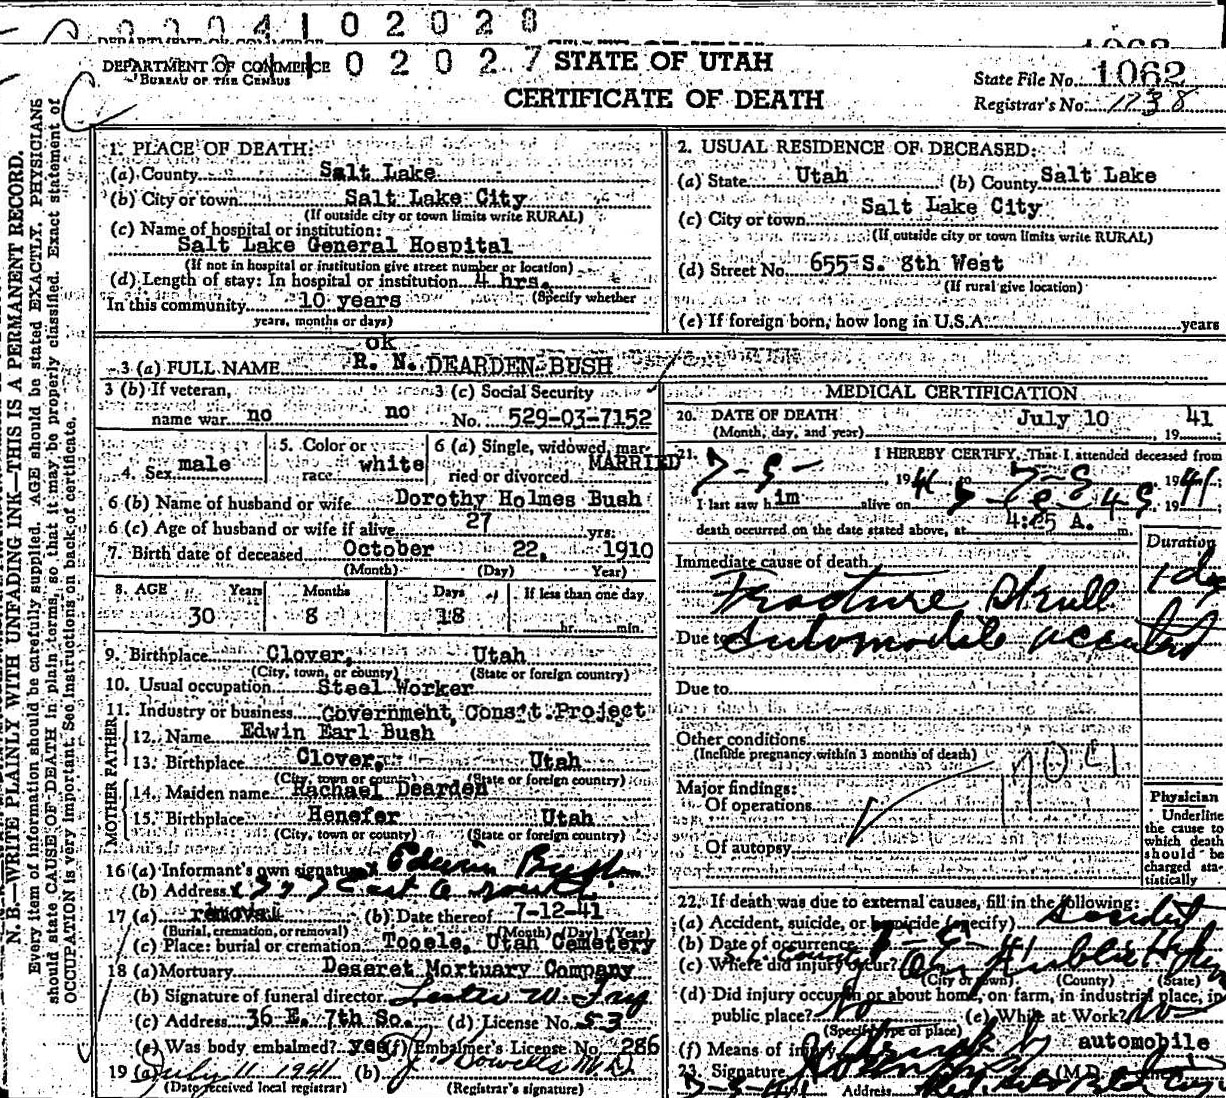 0 0 0 4 1 0 2 0 2 8
DEPARTMENT OF COMMERCE
BUREAU OF THE CENSUS
0 2 0 2 7
STATE OF UTAH
CERTIFICATE OF DEATH
State File No. 1062
Registrar's No. 1238
N. B.—WRITE PLAINLY WITH UNFADING INK—THIS IS A PERMANENT RECORD.
Every item of information should be carefully supplied. AGE should be stated EXACTLY. PHYSICIANS
should state CAUSE OF DEATH in plain terms, so that it may be properly classified. Exact statement of
OCCUPATION is very important. See instructions on back of certificate.
1. PLACE OF DEATH:
(a) County Salt Lake
(b) City or town Salt Lake City
(If outside city or town limits write RURAL)
(c) Name of hospital or institution:
Salt Lake General Hospital
(If not in hospital or institution give street number or location)
(d) Length of stay: In hospital or institution 4 hrs.
(Specify whether
In this community 10 years
years, months or days)
2. USUAL RESIDENCE OF DECEASED:
(a) State Utah (b) County Salt Lake
(c) City or town Salt Lake City
(If outside city or town limits write RURAL)
(d) Street No. 655 S. 8th West
(If rural give location)
(e) If foreign born, how long in U.S.A. years
ok
3 (a) FULL NAME R. N. DEARDEN BUSH
3 (b) If veteran,
name war no no
3 (c) Social Security
No. 529-03-7152
4. Sex male
5. Color or
race white
6 (a) Single, widowed, mar-
ried or divorced MARRIED
6 (b) Name of husband or wife Dorothy Holmes Bush
6 (c) Age of husband or wife if alive 27 yrs.
7. Birth date of deceased October 22, 1910
(Month) (Day) Year)
8. AGE Years Months Days If less than one day
30 8 18 hr. min.
9. Birthplace Clover, Utah
(City, town, or county) (State or foreign country)
10. Usual occupation Steel Worker
11. Industry or business Government Cons't.Project
FATHER
12. Name Edwin Earl Bush
13. Birthplace Clover, Utah
(City, town or county) (State or foreign country)
MOTHER
14. Maiden name Rachael Dearden
15. Birthplace Henefer Utah
(City, town or county) (State or foreign country)
16 (a) Informant's own signature x Edwin Bush
(b) Address
17 (a) removal (b) Date thereof 7-12-41
(Burial, cremation, or removal) (Month) (Day) (Year)
(c) Place: burial or cremation Tooele, Utah Cemetery
18 (a) Mortuary Deseret Mortuary Company
(b) Signature of funeral director Lester W. Fry
(c) Address 36 E. 7th So. (d) License No. 53
(e) Was body embalmed? yes (f) Embalmer's License No. 286
19 (a) July 11 1941 (b)
(Date received local registrar) (Registrar's signature)
MEDICAL CERTIFICATION
20. DATE OF DEATH July 10 41
(Month, day, and year) , 19
21. I HEREBY CERTIFY, That I attended deceased from
7-9- 1941 to 1941;
I last saw him alive on 19
death occurred on the date stated above, at 4:25 A. m.
Duration
Immediate cause of death
Fracture Skull 1 dy
Due to Automobile accident
Due to
Other conditions
(Include pregnancy within 3 months of death)
Major findings:
Of operations
Of autopsy
Physician
Underline
the cause to
which death
should be
charged sta-
tistically
22. If death was due to external causes, fill in the following:
(a) Accident, suicide, or homicide (specify) Accident
(b) Date of occurrence
(c) Where did injury occur? On Public
(City or town) (County) (State)
(d) Did injury occur in or about home, on farm, in industrial place, in
public place? (e) While at Work? No
(Specify type of place)
(f) Means of injury Struck by automobile
23. Signature (M.D. other)
Address